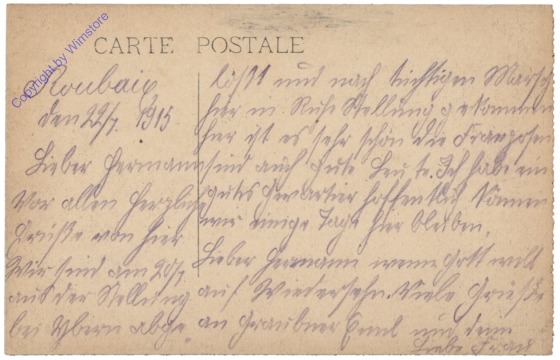 CARTE POSTALE
Roubaix
den 22/7. 1915
Lieber Hermann
Vor allen Herzliche
Grüße von hier
Wir sind am 20/7
aus der Stellung
bei Ybern abge
löst und nach tüchtigen Marsch
hier in Ruhe Stellung gekommen
hier ist es sehr schön die Franzosen
sind auch gute Leute. Ich habe ein
gutes Quartier hoffentlich können
wir einige Tage hier bleiben.
Lieber Hermann wenn Gott will
auf Wiedersehn. Viele Grüße
an Graubner Emil und dem
Liebe Frau
Copyright by Wimstore